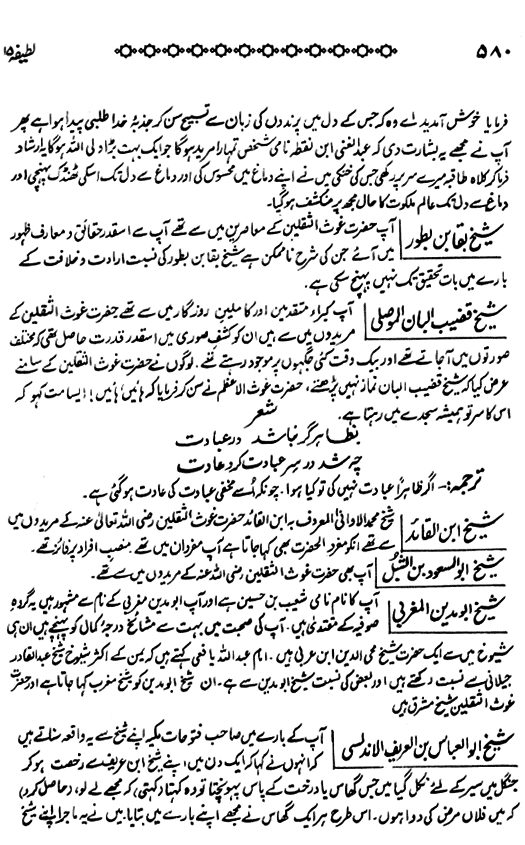 ۵۸۰
لطیفہ ۱۵
فرمایا خوش آمدید اے وہ کہ جس کے دل میں پرندوں کی زبان سے تسبیح سن کر جذبۂ خدا طلبی پیدا ہوا ہے پھر
آپ نے مجھے یہ بشارت دی کہ عبدالغنی ابن نقطہ نامی شخص تمہارا مرید ہوگا جو ایک بہت بڑا ولی اللہ ہوگا یہ ارشاد
فرما کر کلاہ طاقیہ میرے سر پر رکھی جس کی خنکی میں نے اپنے دماغ میں محسوس کی اور دماغ سے دل تک اسکی ٹھنڈک پہنچی اور
دماغ سے دل تک عالم ملکوت کا حال مجھ پر منکشف ہوگیا۔
شیخ بقا بن بطور
آپ حضرت غوث الثقلین کے معاصرین میں سے تھے آپ سے اسقدر حقائق و معارف ظہور
میں آئے جن کی شرح ناممکن ہے شیخ بقا بن بطور کی نسبت ارادت و خلافت کے
بارے میں بات تحقیق تک نہیں پہنچ سکی ہے۔
شیخ قضیب البان الموصلی
آپ کبراء متقدمین اور کاملین روزگار میں سے تھے حضرت غوث الثقلین کے
مریدوں میں سے ہیں ان کو کشف صوری میں اسقدر قدرت حاصل تھی کہ مختلف
صورتوں میں آجاتے تھے اور بیک وقت کئی جگہوں پر موجود رہتے تھے۔ لوگوں نے حضرت غوث الثقلین کے سامنے
عرض کیا کہ شیخ قضیب البان نماز نہیں پڑھتے، حضرت غوث الاعظم نے سن کر فرمایا کہ ہائیں ہائیں!! ایسا مت کہو کہ
اس کا سر تو ہمیشہ سجدے میں رہتا ہے۔
شعر
بظاہر گر نباشد در عبادت
چہ شد در سر عبادت کرد عادت
ترجمہ:۔ اگر ظاہراً عبادت نہیں کی تو کیا ہوا۔ چونکہ اُسے مخفی عبادت کی عادت ہوگئی ہے۔
شیخ ابن القائد
شیخ محمد الاوانی المعروف بہ ابن القائد حضرت غوث الثقلین رضی اللہ تعالیٰ عنہ کے مریدوں میں
سے تھے انکو مفرد الحضرت بھی کہا جاتا ہے آپ مفردان میں تھے۔ منصب افراد پر فائز تھے۔
شیخ ابو السعود بن الشبل
آپ بھی حضرت غوث الثقلین رضی اللہ عنہ کے مریدوں میں سے تھے۔
شیخ ابو مدین المغربی
آپ کا نام نامی شعیب بن حسین ہے اور آپ ابو مدین مغربی کے نام سے مشہور ہیں یہ گروہِ
صوفیہ کے مقتدی ہیں۔ آپ کی صحبت میں بہت سے مشائخ درجۂ کمال کو پہنچے ہیں ان ہی
شیوخ میں سے ایک حضرت شیخ محی الدین ابن عربی ہیں۔ امام عبداللہ یافعی کہتے ہیں کہ یمن کے اکثر شیوخ شیخ عبدالقادر
جیلانی سے نسبت رکھتے ہیں اور بعض کی نسبت شیخ ابو مدین سے ہے۔ ان شیخ ابو مدین کو شیخ مغرب کہا جاتا ہے اور حضرت
غوث الثقلین شیخ مشرق ہیں
شیخ ابو العباس بن العریف الاندلسی
آپ کے بارے میں صاحب فتوحات مکیہ اپنے شیخ سے یہ واقعہ سناتے ہیں
کہ انہوں نے کہا کہ ایک دن میں اپنے شیخ ابن عریف سے رخصت ہو کر
جنگل میں سیر کے لئے نکل گیا میں جس گھاس یا درخت کے پاس پہونچتا تو وہ کہتا (کہتی) کہ مجھے لے لو، (حاصل کرو)
کہ میں فلاں مرض کی دوا ہوں۔ اس طرح ہر ایک گھاس نے مجھے اپنے بارے میں بتایا۔ میں نے یہ ماجرا اپنے شیخ